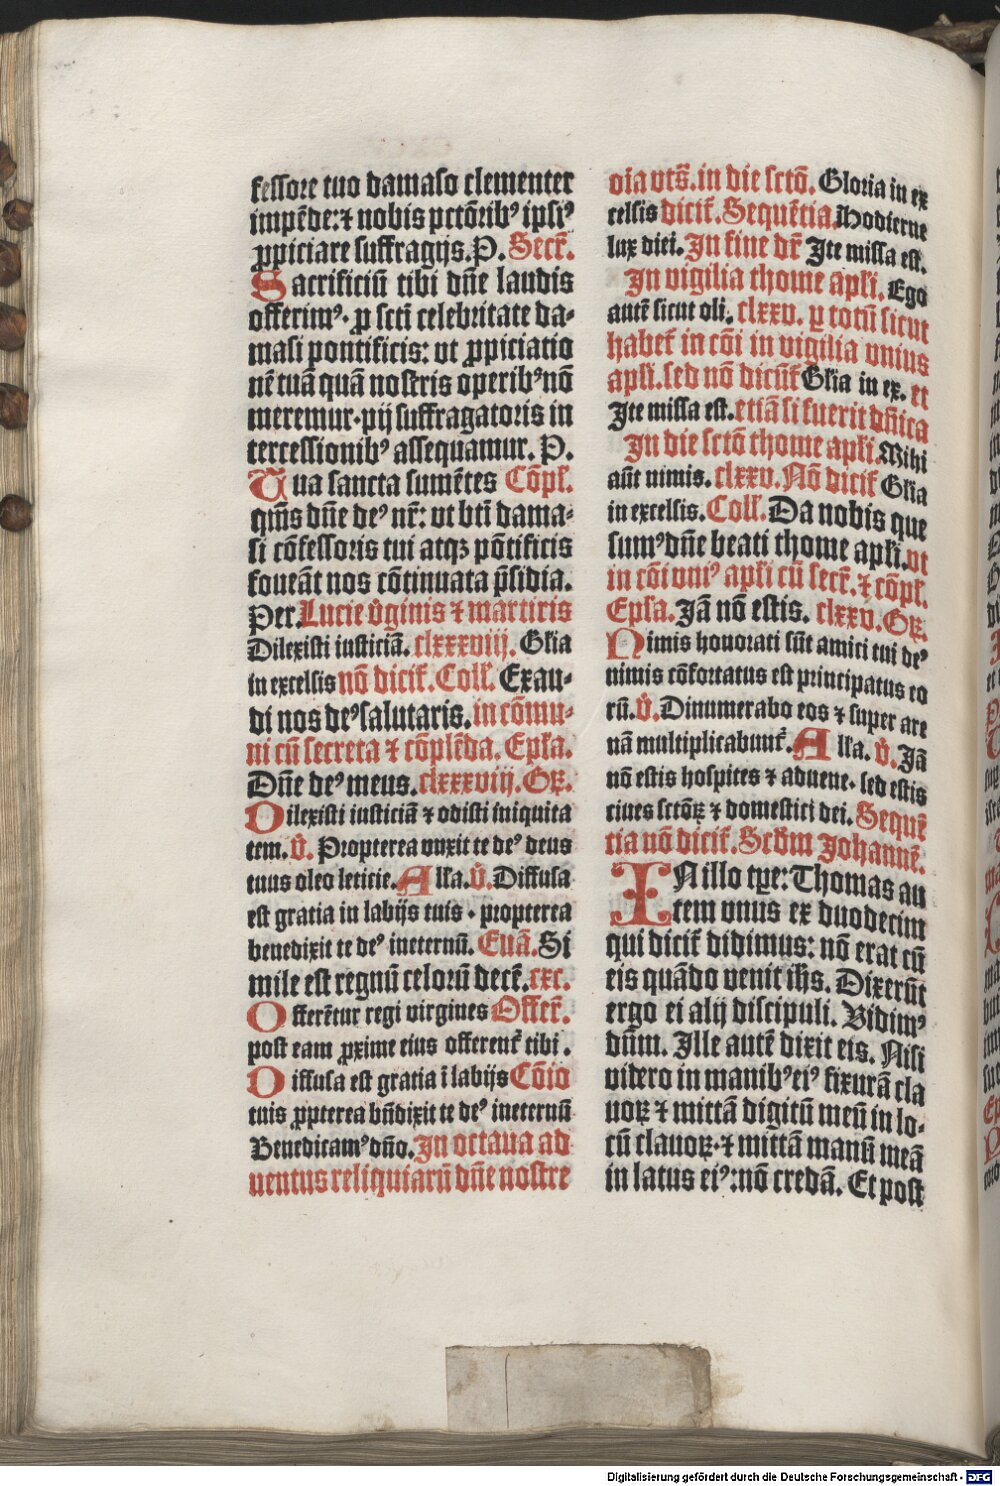 fessore tuo damaso clementer
impēde: ⁊ nobis pctōribꝰ ipsiꝰ
ꝓpiciare suffragijs. P. Secr̄.
Sacrificiū tibi dn̄e laudis
offerimꝰ· ꝓ scti celebritate da⸗
masi pontificis: vt ꝓpiciatio
nē tuā quā nostris operibꝰ nō
meremur· pij suffragatoris in
tercessionibꝰ assequamur. P.
Tua sancta sumētes Cōpl̄.
qm̄s dn̄e deꝰ nr̄: vt bti dama⸗
si cōfessoris tui atqꝫ pōtificis
foueāt nos cōtinuata p̄sidia.
Per. Lucie v̄ginis ⁊ martiris
Dilexisti iusticiā. clxxxviij. Gl̄ia
in excelsis nō dicit̄. Coll̄. Exau⸗
di nos deꝰ salutaris. in cōmu⸗
ni cū secreta ⁊ cōplēda. Epl̄a.
Dn̄e deꝰ meus. clxxxviij. Gꝝ.
Dilexisti iusticiā ⁊ odisti iniquita
tem. v̄. Propterea vnxit te deꝰ deus
tuus oleo leticie. Alla. v̄. Diffusa
est gratia in labijs tuis · propterea
benedixit te deꝰ ineternū. Euā. Si
mile est regnū celorū decē. cxc.
Offerētur regi virgines Offer̄.
post eam ꝓxime eius offerent̄ tibi.
Diffusa est gratia ī labijs Cōio
tuis ꝓpterea bn̄dixit te deꝰ ineternū
Benedicamꝰ dn̄o. In octaua ad
uentus reliquiarū dn̄e nostre
oīa vts̄. in die sctō. Gloria in ex
celsis dicit̄. Sequētia. Hodierne
lux diei. In fine dr̄ Ite missa est.
In vigilia thome apl̄i. Ego
autē sicut oli. clxxv. ⁊ totū sicut
habet̄ in cōi in vigilia vnius
apl̄i. sed nō dicūt̄ Gl̄ia in ex. et
Ite missa est. etiā si fuerit dn̄ica
In die sctō thome apl̄i. Mihi
aūt nimis. clxxv. Nō dicit̄ Gl̄ia
in excelsis. Coll̄. Da nobis que
sumꝰ dn̄e beati thome apl̄i. vt
in cōi vniꝰ apl̄i cū secr̄. ⁊ cōpl̄.
Epl̄a. Jā nō estis. clxxv. Gꝝ.
Nimis honorati sūt amici tui deꝰ
nimis cōfortatus est principatus eo
rū. v̄. Dinumerabo eos ⁊ super are
nā multiplicabunt̄. Alla. v̄. Jā
nō estis hospites ⁊ aduene· sed estis
ciues sctōꝝ ⁊ domestici dei. Sequē
tia nō dicit̄. Scd̄m Johannē.
IN illo tꝑe: Thomas au
tem vnus ex duodecim
qui dicit̄ didimus: nō erat cū
eis quādo venit ih̄s. Dixerūt
ergo ei alij discipuli. Vidimꝰ
dn̄m. Ille autē dixit eis. Nisi
videro in manibꝰ eiꝰ fixurā cla
uoꝝ ⁊ mittā digitū meū in lo⸗
cū clauoꝝ· ⁊ mittā manū meā
in latus eiꝰ: nō credā. Et post
Digitalisierung gefördert durch die Deutsche Forschungsgemeinschaft - DFG